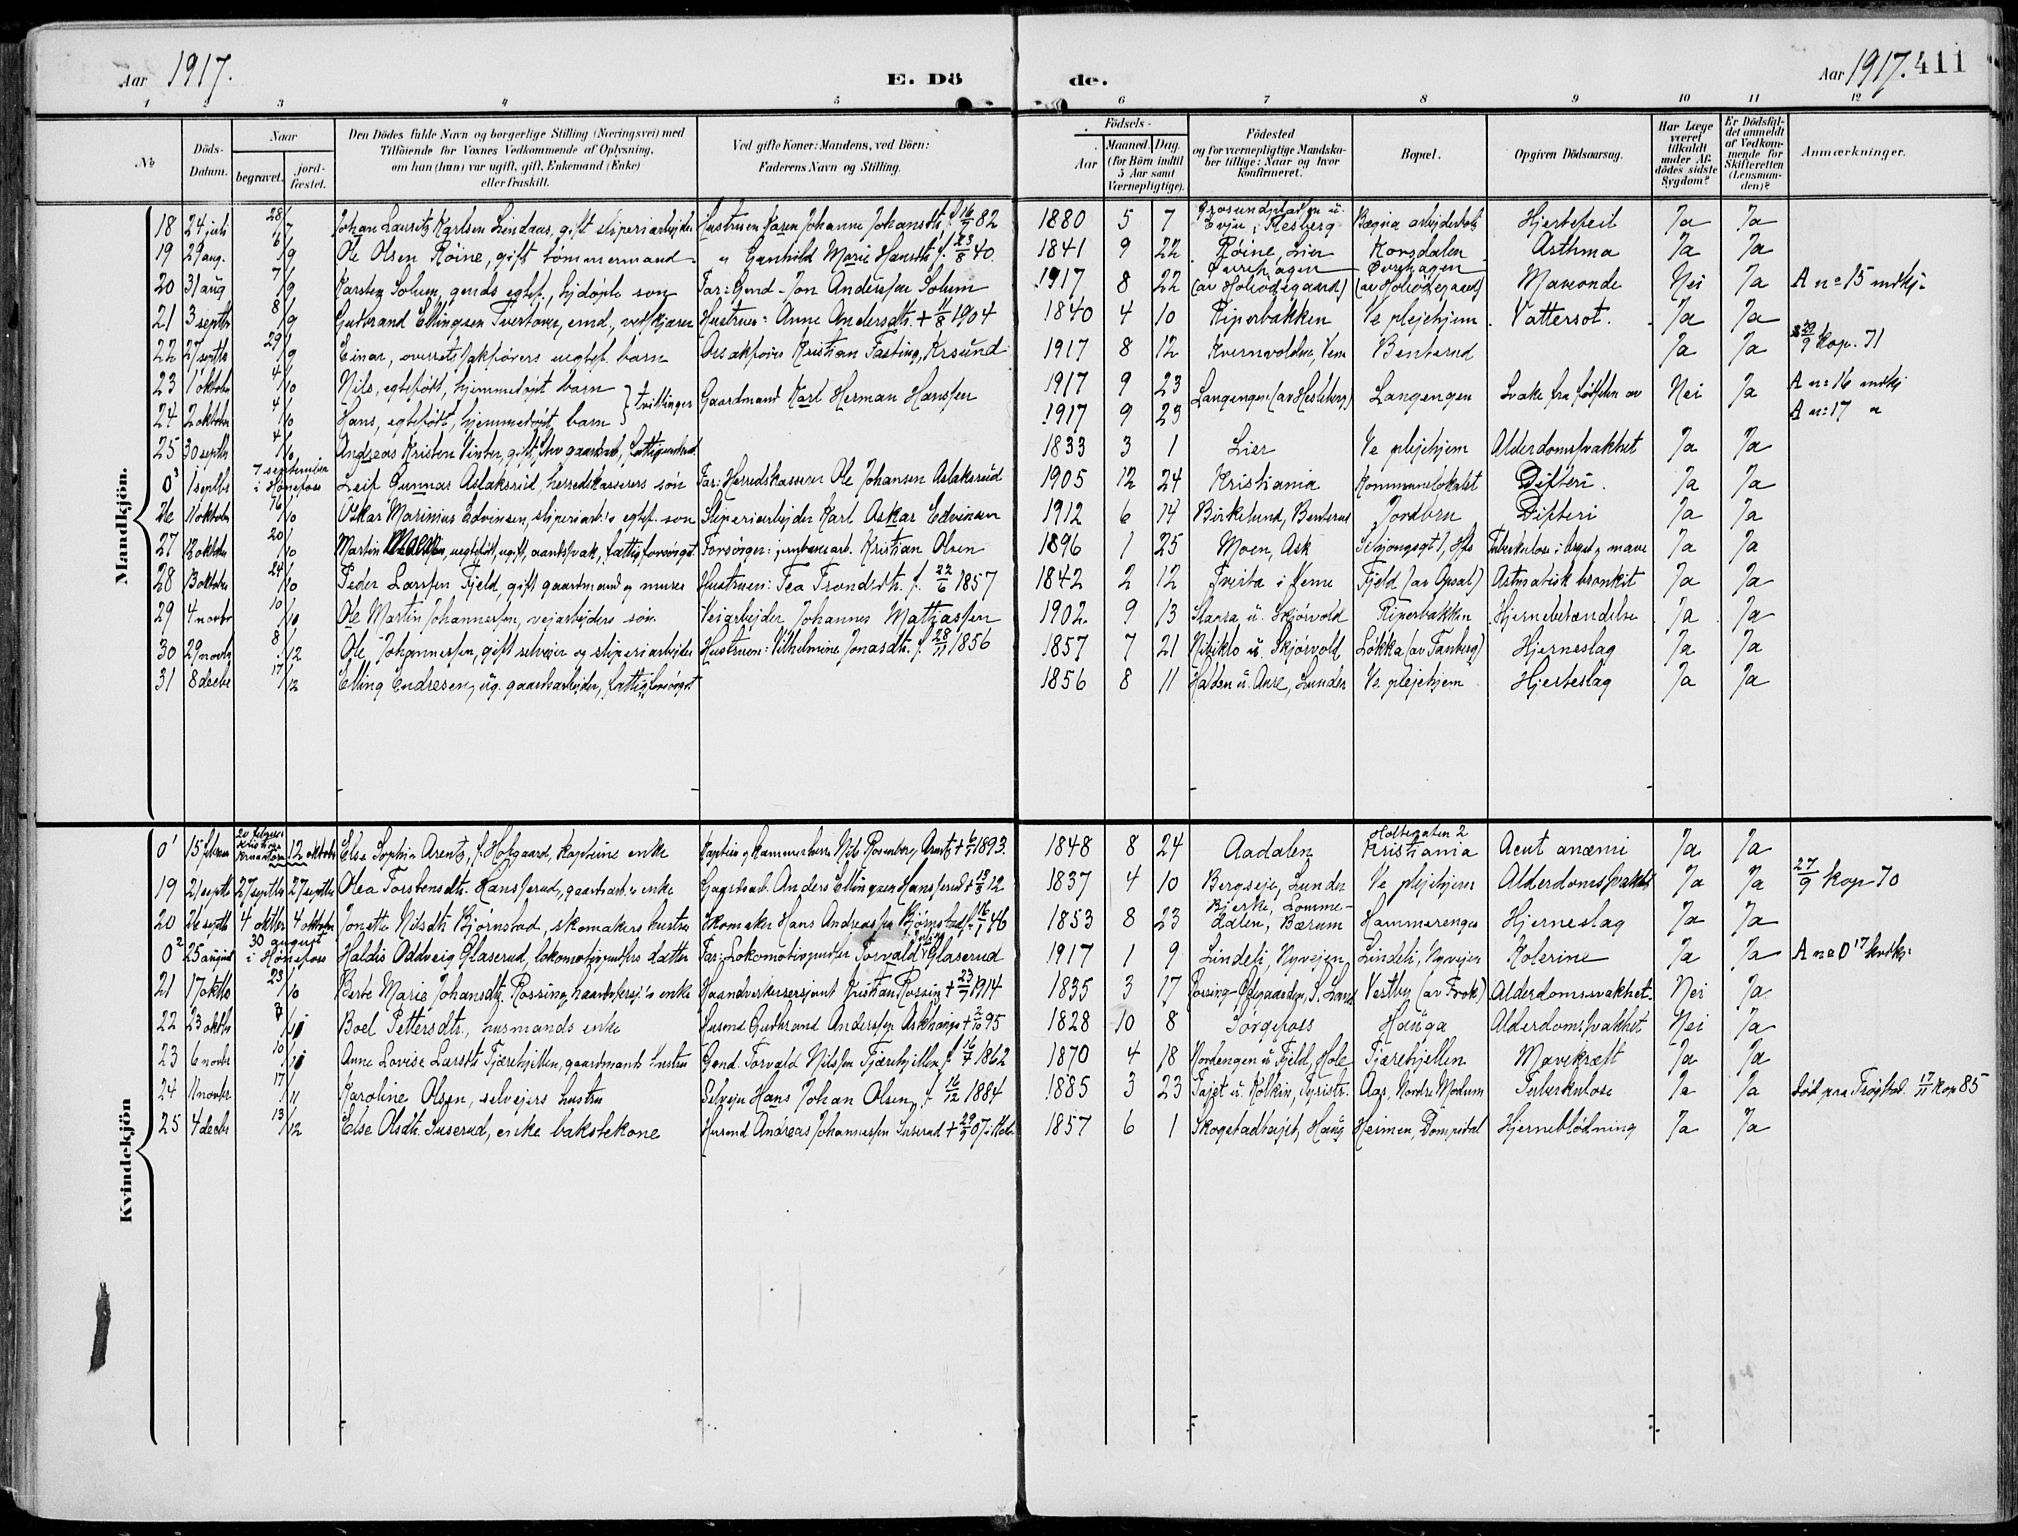 Aar 1917. E. Dö de. Aar 1917. 411
1 2 3 4 5 6 7 8 9 10 11 12
No. Döds-Datum. Naar begravet. jord-fæstet. Den Dödes fulde Navn og borgerlige Stilling (Næringsvei) med Tilföiende for Voxnes Vedkommende af Oplysning, om han (hun) var ugift, gift, Enkemand (Enke) eller fraskilt. Ved gifte Koner: Mandens, ved Börn: Faderens Navn og Stilling. Födsels- Aar Maaned. Dag. (for Börn indtil 5 Aar samt Værnepligtige). Födested og for værnepligtige Mandskaber tillige: Naar og hvor konfirmeret. Bopæl. Opgiven Dödsaarsag. Har Læge været tilkaldt under Afdödes sidste Sygdom? Er Dödsfaldet anmeldt af Vedkommende for Skifteretten (Lensmanden)? Anmærkninger.
Mandkjön.
18 24 juli 28/7 Johan Lauritz Karlsen Lindaas, gift sliperiarbejder Hustruen Karen Johanne Johansdtr. f. 16/9 82 1880 5 7 i Flesberg Bægna arbejderbolig Hjertefeil Ja Ja
19 29 aug. 6/9 Ole Olsen Røine, gift tømmermand " Gunhild Marie Hansdtr. f. 23/8 40. 1841 9 22 Røine, Lier Korsdalen Asthma Ja Ja
20 31 aug 7/9 Karsten Solum, gmds egtef., hjdøpte søn Far: Gmd. Jon Andersen Solum 1917 8 22 Øvrehagen (av Holeødegaard) Øvrehagen (av Holeødegaard) Maveonde Nei Ja A no 15 mdkj.
21 3 septbr 8/9 Gudbrand Ellingsen Tvertover, emd, vedhjører Hustrue: Anne Andersdtr. + 11/8 1904 1840 4 10 Piperbakken Ve plejehjem Vattersot. Ja Ja
22 27 septbr 29/9 Einar, overretssakførers uegtef. barn Orsakfører Kristian Fasting, Krsund 1917 8 12 Kvernvolden, Veme Benterud Ja Ja 29/9 kop. 71
23 1 oktobr 4/10 Nils, egtefødt, hjemmedøpt barn } tvillinger Gaardmand Karl Herman Hanssen 1917 9 23 Langengen (av Hesleberg) Langengen Svake fra fødslen av Nei Ja A no 16 mdkj
24 2 oktobr 4/10 Hans, egtefødt, hjemmedøpt barn 1917 9 23 A no 17 "
25 30 septbr 4/10 Andreas Kristen Vinter, gift, gaardarb., fattigunderst. 1833 3 1 Lier Ve plejehjem Alderdomssvakhet Ja Ja
0³ 1 septbr 7 september i Hønefoss Leif Gunnar Aslaksrud, herredskasserers søn Far: Herredskasserer Ole Johansen Aslaksrud 1905 12 24 Kristiania Kommunelokalet Difteri. Ja Ja
26 11 oktobr 16/10 Oskar Marinius Edvinsen, sliperiarb.s egtef. søn Sliperiarbejder Karl Oskar Edvinsen 1912 6 14 Birkelund, Benterud Jordbru Difteri Ja Ja
27 12 oktbr 20/10 Martin, uegtefødt, ugift, aandssvak, fattigforsørget Forsørger: jernbanearb. Kristian Olsen 1896 1 25 Moen, Ask Hfs Tuberkulose i bryst og mave Ja Ja
28 13 oktobr 24/10 Peder Larssen Fjeld, gift gaardmand og murer Hustruen: Tea Trondsdtr. f. 22/6 1857 1842 2 12 Tveita i Veme Fjeld (av Opsal) Astmatisk bronkit Ja Ja
29 4 novbr 10/10 Ole Martin Johannessen, vejarbejders søn. Veiarbejder Johannes Mathiassen 1902 9 13 u. Skjørvold Piperbakken Hjernebetændelse Ja Ja
30 29 novbr 8/12 Ole Johannessen, gift selveier og sliperiarbejder Hustruen: Vilhelmine Jonasdtr. f. 28/11 1856 1857 7 21 u. Skjørvold Løkka (av Tanberg) Hjerneslag Ja Ja
31 8 decbr 17/12 Elling Endresen, ug. gaardsarbejder, fattigforsørget 1856 8 11 Halden u. Aure, Lunder Ve. plejehjem Hjerteslag Ja Ja
Kvindekjön
0¹ 15 februar 12 oktober Else Sophie Arentz, f. Hofgaard, kapteine enke Kaptein og kammerherre Nils Rosenberg Arentz + 1893. 1848 8 24 Aadalen Holtegaten 2 Kristiania Acut anæmi Ja Ja
19 21 septbr 27 septbr 27 septbr Olea Torstensdtr. Hansserud, gaardsarb.s enke Gaardsarb. Anders Ellingsen Hansserud + 12 1837 4 10 Bergseje, Lunder Ve plejehjem Alderdomssvakhet Ja Ja 27/9 kop 70
20 26 septbr 4 oktbr 4 oktober Jonette Nilsdtr. Bjørnstad, skomakers hustru Skomaker Hans Andreassen Bjørnstad f. 46 1853 8 23 Bjerke, Lommedalen, Bærum Hammerengen Hjerneslag Ja Ja
0² 25 august 30 august i Hønefoss Haldis Oddveig Glaserud, lokomotivpudsers datter Far: Lokomotivpudser Torvald Glaserud 1917 1 9 Lindeli, Nyvejen Lindeli, Nyvejen Kolerine Ja Ja A no 0¹⁷ kvdkj.
21 17 oktbr 23/10 Berte Marie Johansdtr. Rossing, haandversersj.s enke Haandverkersersjant Kristian Rossing + 23/7 1914 1835 3 17 Rossing Ødegaarden, S. Land Vestby (av Frok) Alderdomssvakhet. Nei Ja
22 23 oktbr Boel Pettersdtr., husmands enke Husmd Gudbrand Anderssen Askhaugen + 95 1828 10 8 Sørgefoss Hauga Alderdomssvakhet Nei Ja
23 6 novbr Anne Lovise Larsdtr. Tjærehjellen, gaardmands hustru Gmd. Torvald Nilssen Tjærehjellen f. 16/7 1862 1870 4 18 Nordengen u. Fjeld, Hole Tjærehjellen Mavekræft Ja Ja
24 11 novbr 17/11 Karoline Olsen, selvejers hustru Selvejer Hans Johan Olsen, f. 16/12 1884 1885 3 23 u. Kolkin, Tyristr. Aas, Nordre Modum Tuberkulose Ja Ja Død paa Frøystad. 17/11 kop 85
25 4 decbr 13/12 Else Olsdtr. Suserud, enke bakstekone Husmd Andreas Johannessen Suserud + 29/9 07 1857 6 1 Skogstadhøjet, Haug Heimen, Dompidal Hjerneblødning Ja Ja